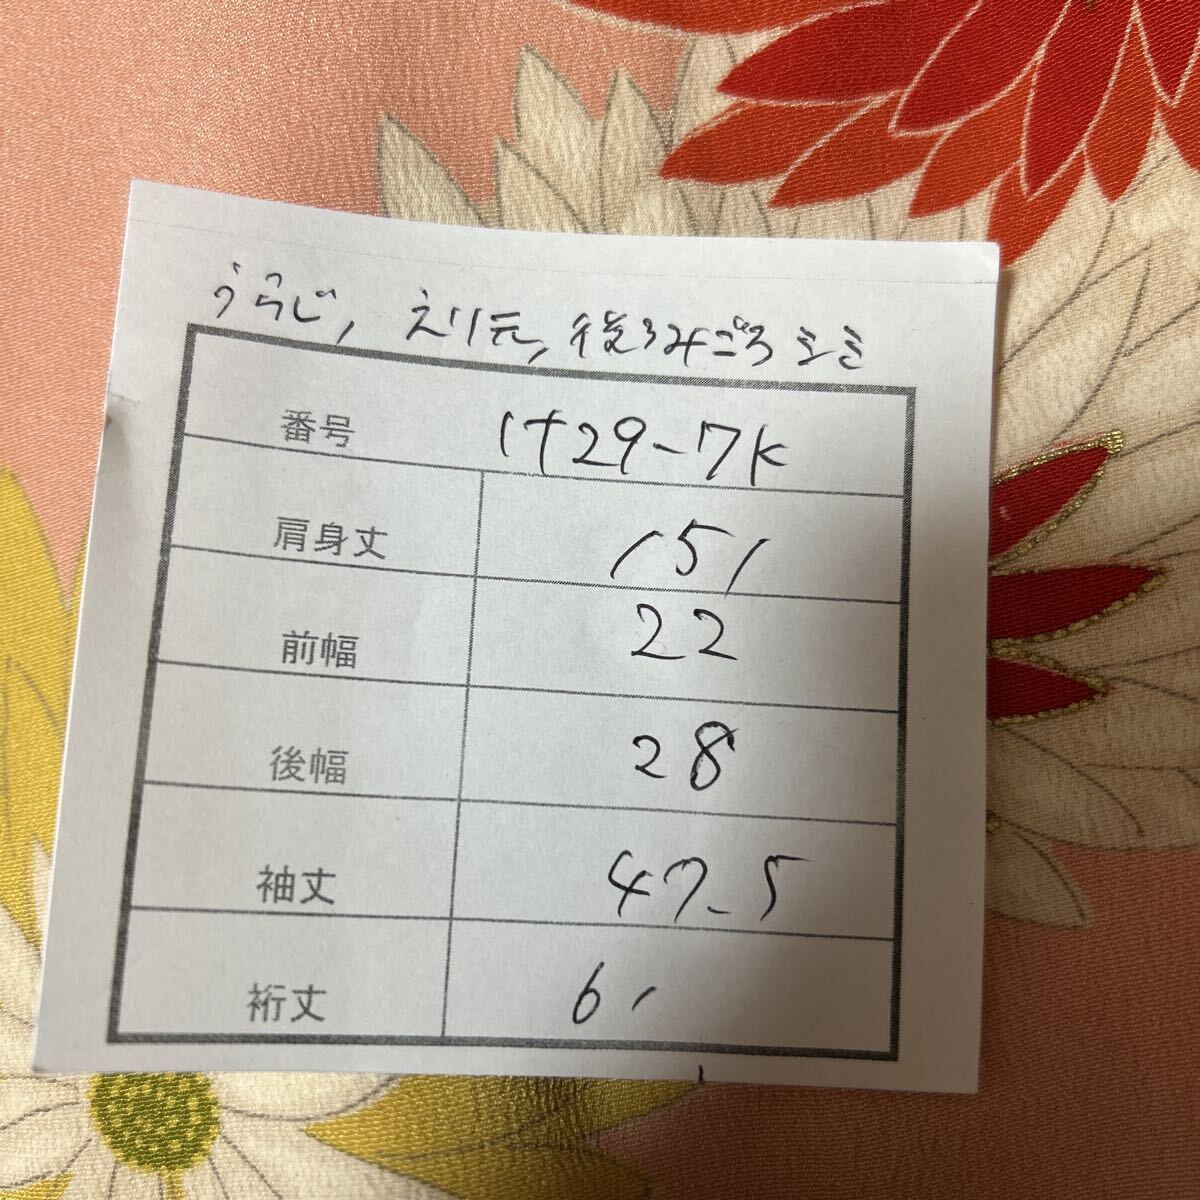 うらじ, えり元, 後ろみごろシミ
番号 1+29-7K
肩身丈 151
前幅 22
後幅 28
袖丈 47.5
裄丈 61